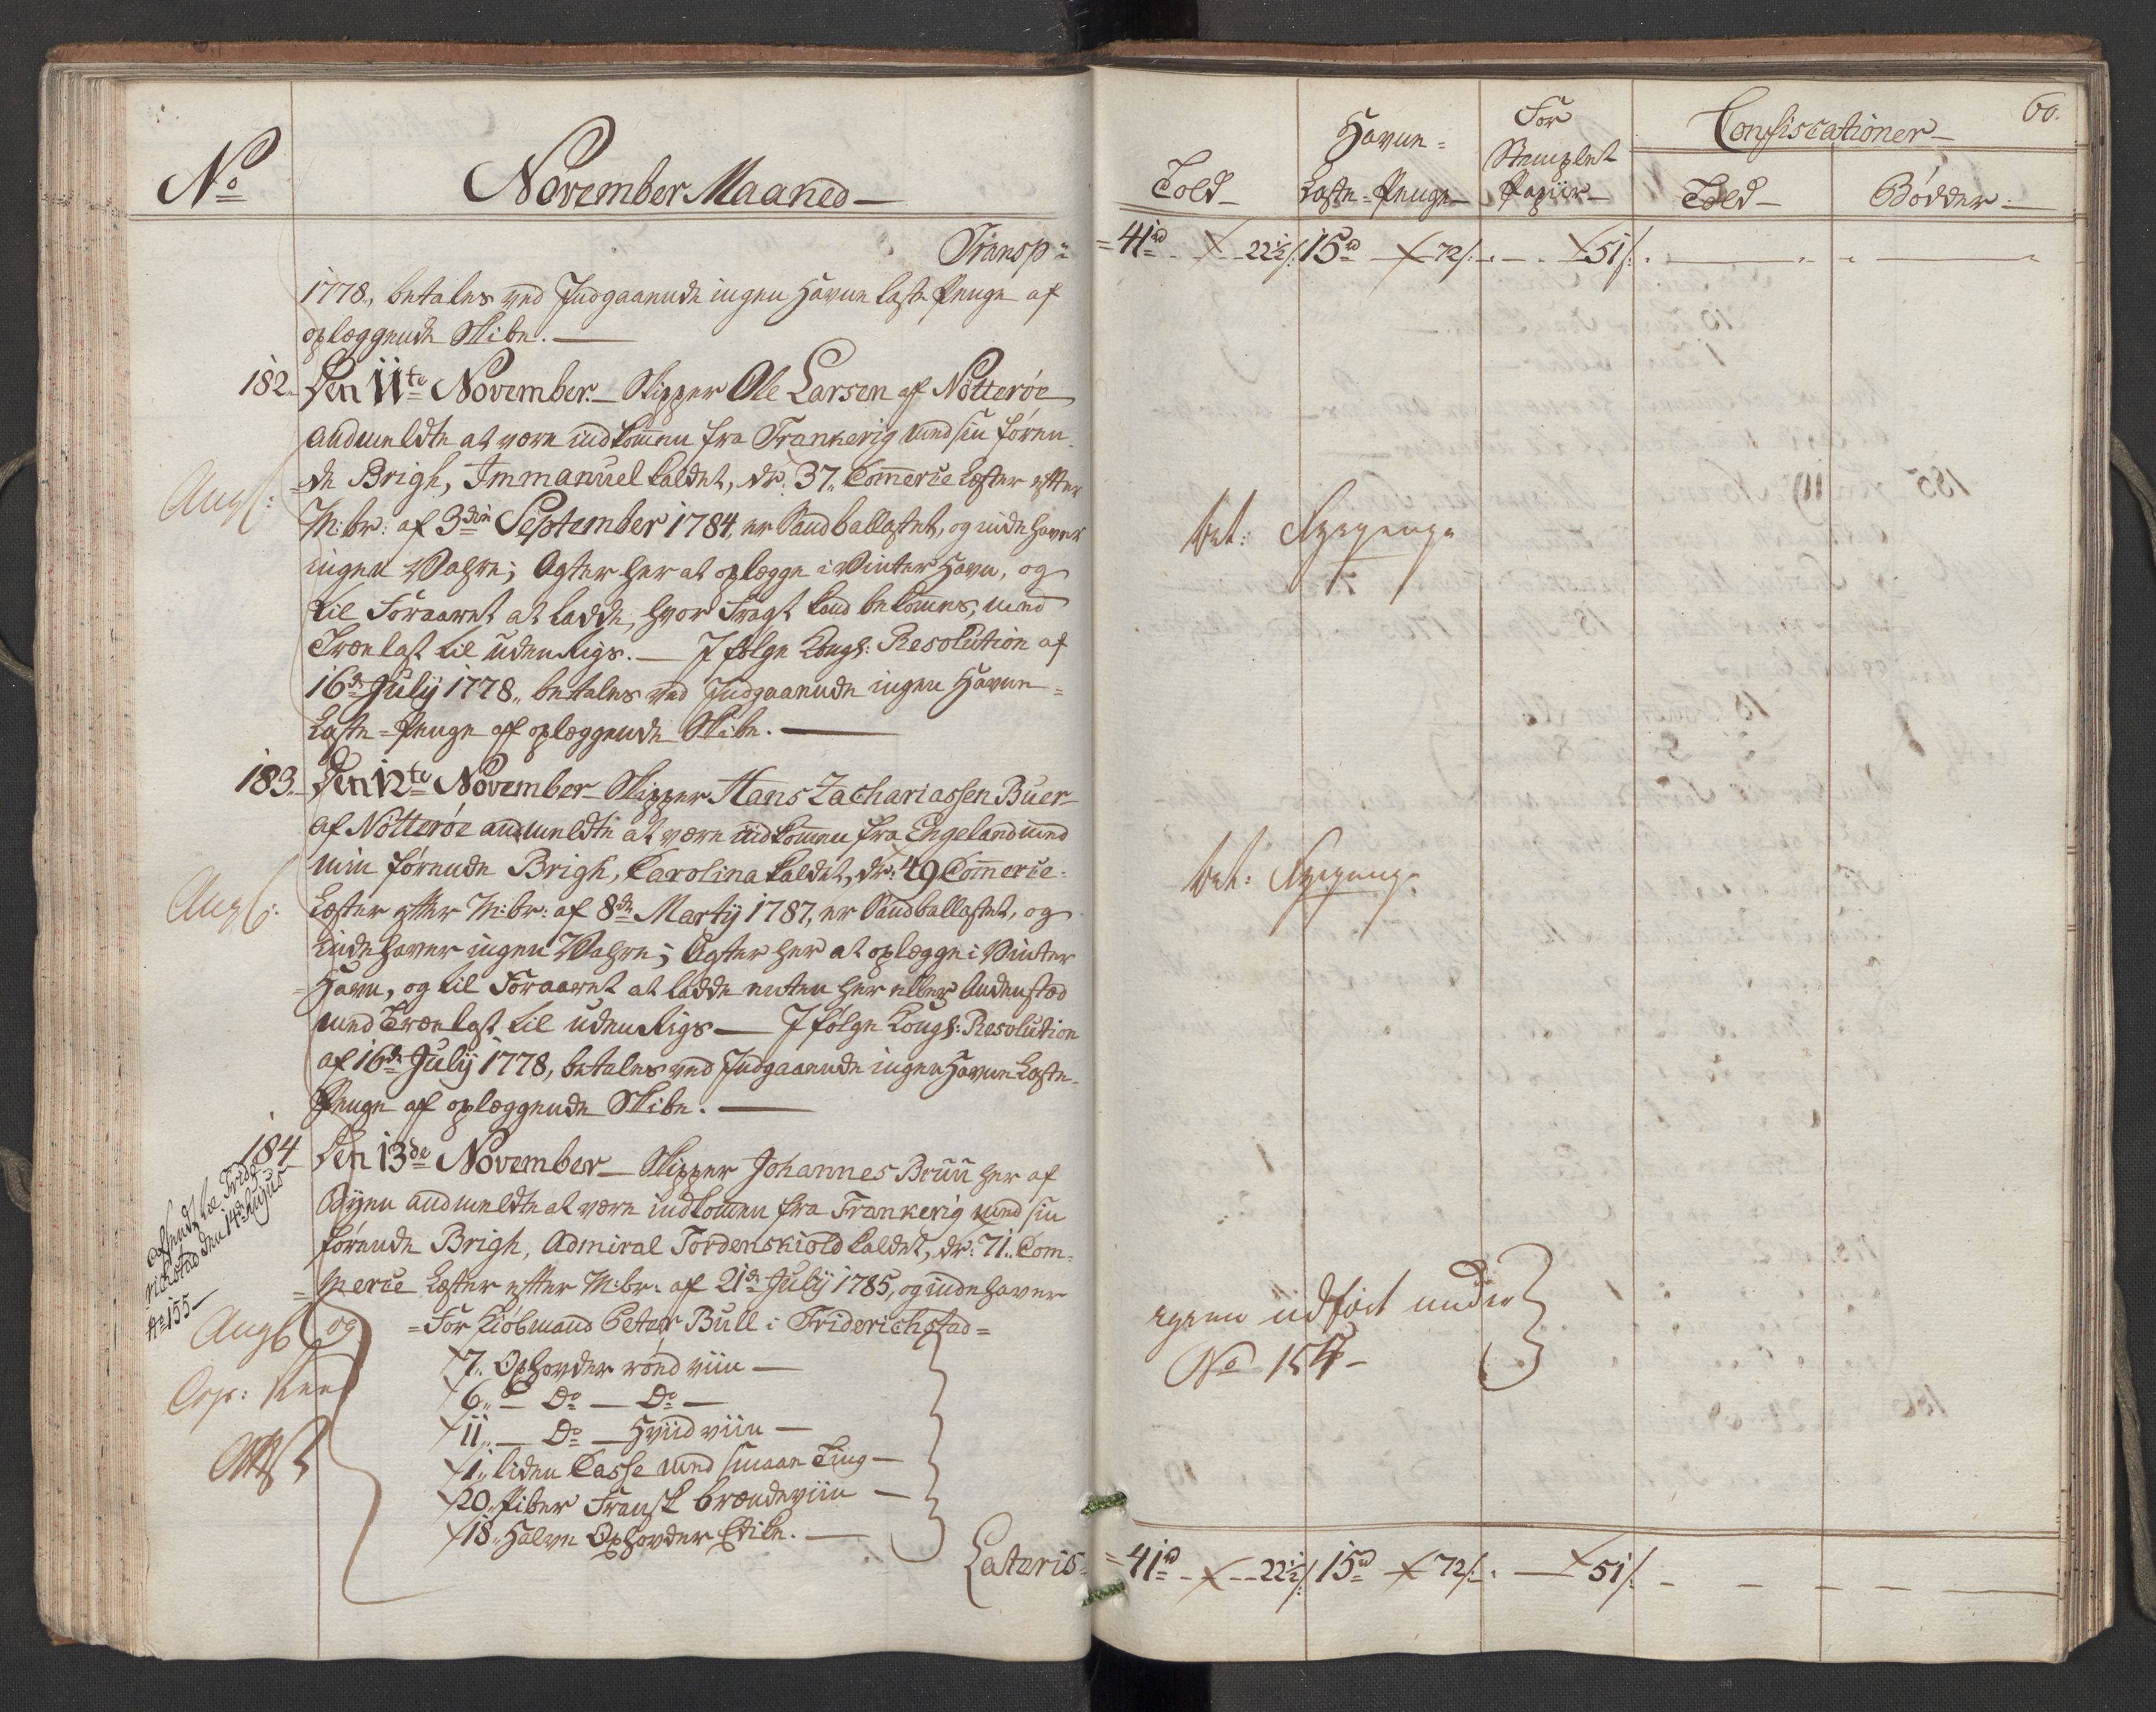 No
November Maaned
Transp:
1778, betales ved Indgaaende ingen Havne laste Penge af
oplæggende Skibe.
182. Den 11te November. Skipper Ole Larsen af Nötteröe
andmeldte at være indkommen fra Frankerig med sin føren-
=de Brigh, Immanuel kaldet, dr: 37 Commerce Læster efter
M:br: af 3die September 1784, er Sandballastet, og indehaver
ingen Vahre; Agter her at oplægge i Vinter Havn, og
til Foraaret at ladde, hvor Fragt kand bekommes, med
Trælast til udenrigs. I følge Kongl: Resolution af
16de Julÿ 1778, betales ved Indgaaende ingen Havne=
Laste=Penge af oplæggende Skibe.
183. Den 12te November Skipper Hans Zachariassen Buer
af Nötteröe andmeldte at være indkommen fra Engeland med
min førende Brigh, Carolina kaldet, dr: 49 Commerce=
Læster efter M:br: af 8de Martÿ 1787, er Sandballastet, og
indehaver ingen Vahre; Agter her at oplægge i Vinter
=Havn, og til Foraaret at ladde enten her eller andenstæd
med Trælast til udenrigs I følge Kongl: Resolution
af 16de Julÿ 1778, betales ved Indgaaende ingen Havne Laste=
Penge af oplæggende Skibe.
184 Den 13de November Skipper Johannes Bruun her af
Byen andmeldte at være indkommen fra Frankerig med sin
førende Brigh, Admiral Tordenskiold kaldet, dr: 71 Com=
=merce Læster efter M:br: af 21de Julÿ 1785, og indehaver
=For Kiöbmand Peter Bull i Friderichstad=
7 Oxhovder röed viin
6 Do Do
11 Do Hviid viin
1 liden Casse med smaae Ting
20 Piber Fransk brændeviin
18 Halve Oxhovder Edike.
Lateris
Afsendt til Fride-
richstad den 14de hujus
No 155
Ang og
60.
Told
Havne=
Laste=Penge
For
Stemplet
Papiir
Confiscationer
Told
Bödder
=41rd 22½s 15rd 72s 51s
bet: Ægepenge
bet: Ægepenge
igien udført under
No 154
=41rd 22½s 15rd 72s 51s